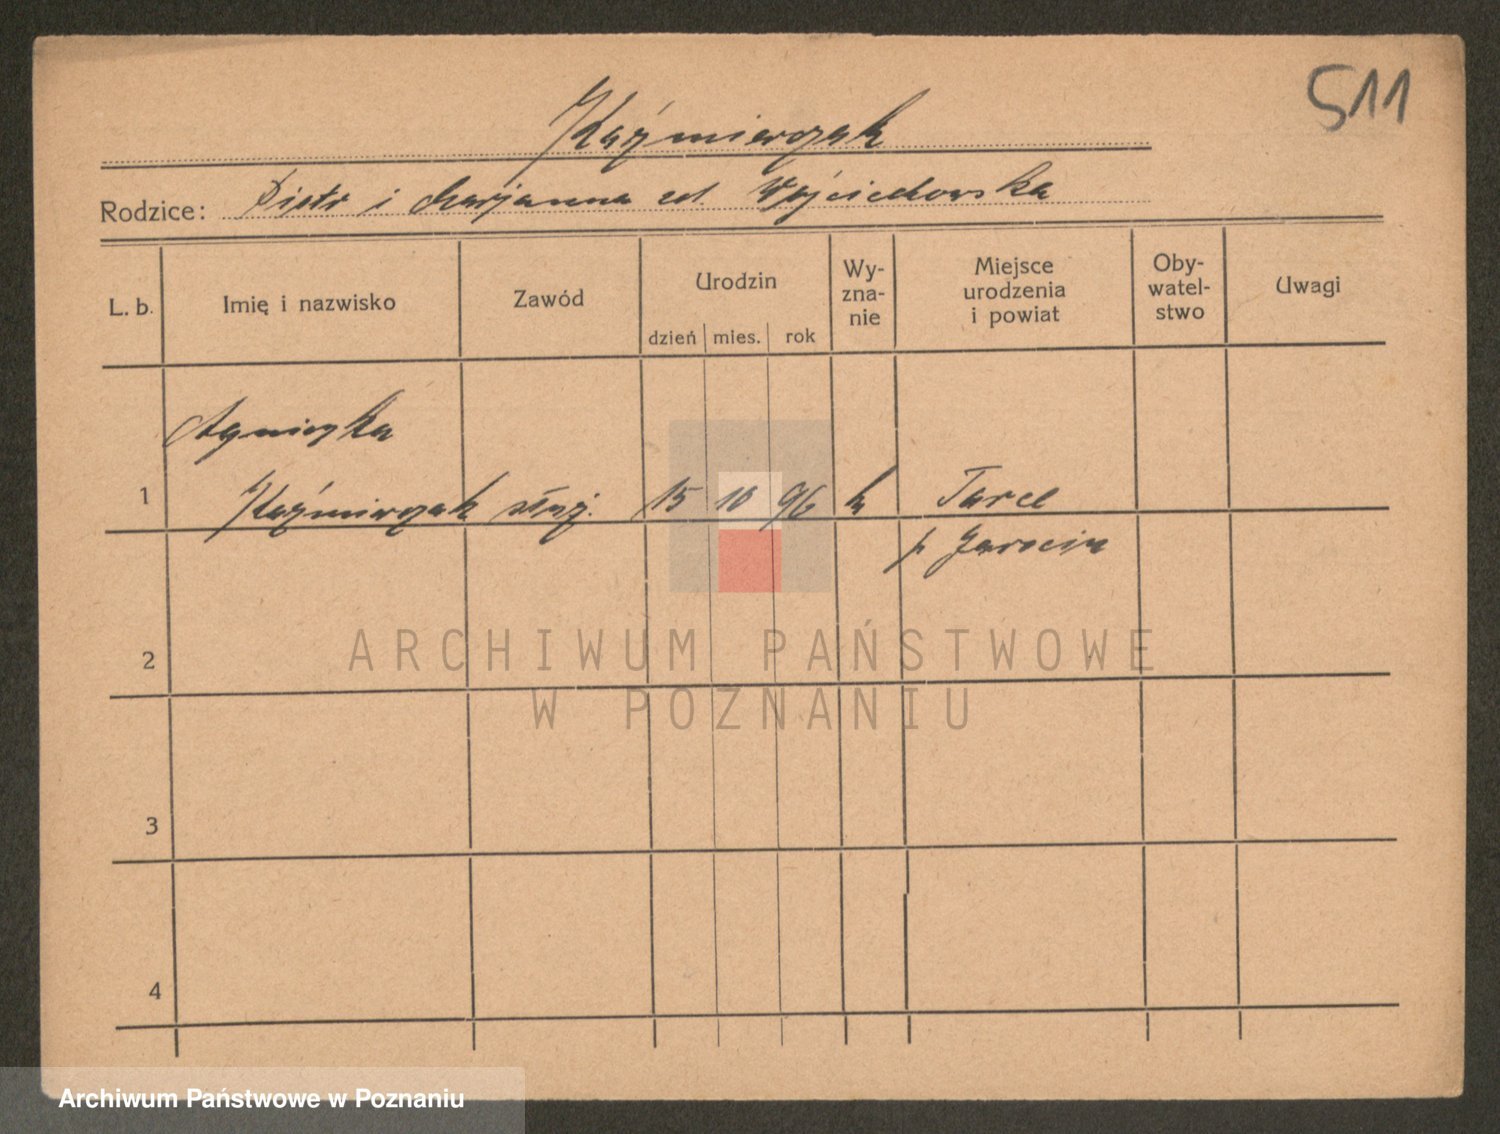 511
Kaźmierczak
Rodzice: Piotr i Marjanna zd. Wojciechowska
L. b.
Imię i nazwisko
Zawód
Urodzin
dzień
mies.
rok
Wy-
zna-
nie
Miejsce
urodzenia
i powiat
Oby-
watel-
stwo
Uwagi
Agnieszka
1 Kaźmierczak służ. 15 10 96 k Tarce
p Jarocin
2
3
4
ARCHIWUM PAŃSTWOWE
W POZNANIU
Archiwum Państwowe w Poznaniu